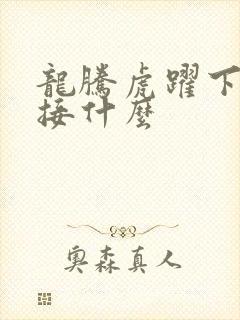 龍騰虎躍下
接什麼
奧森真人